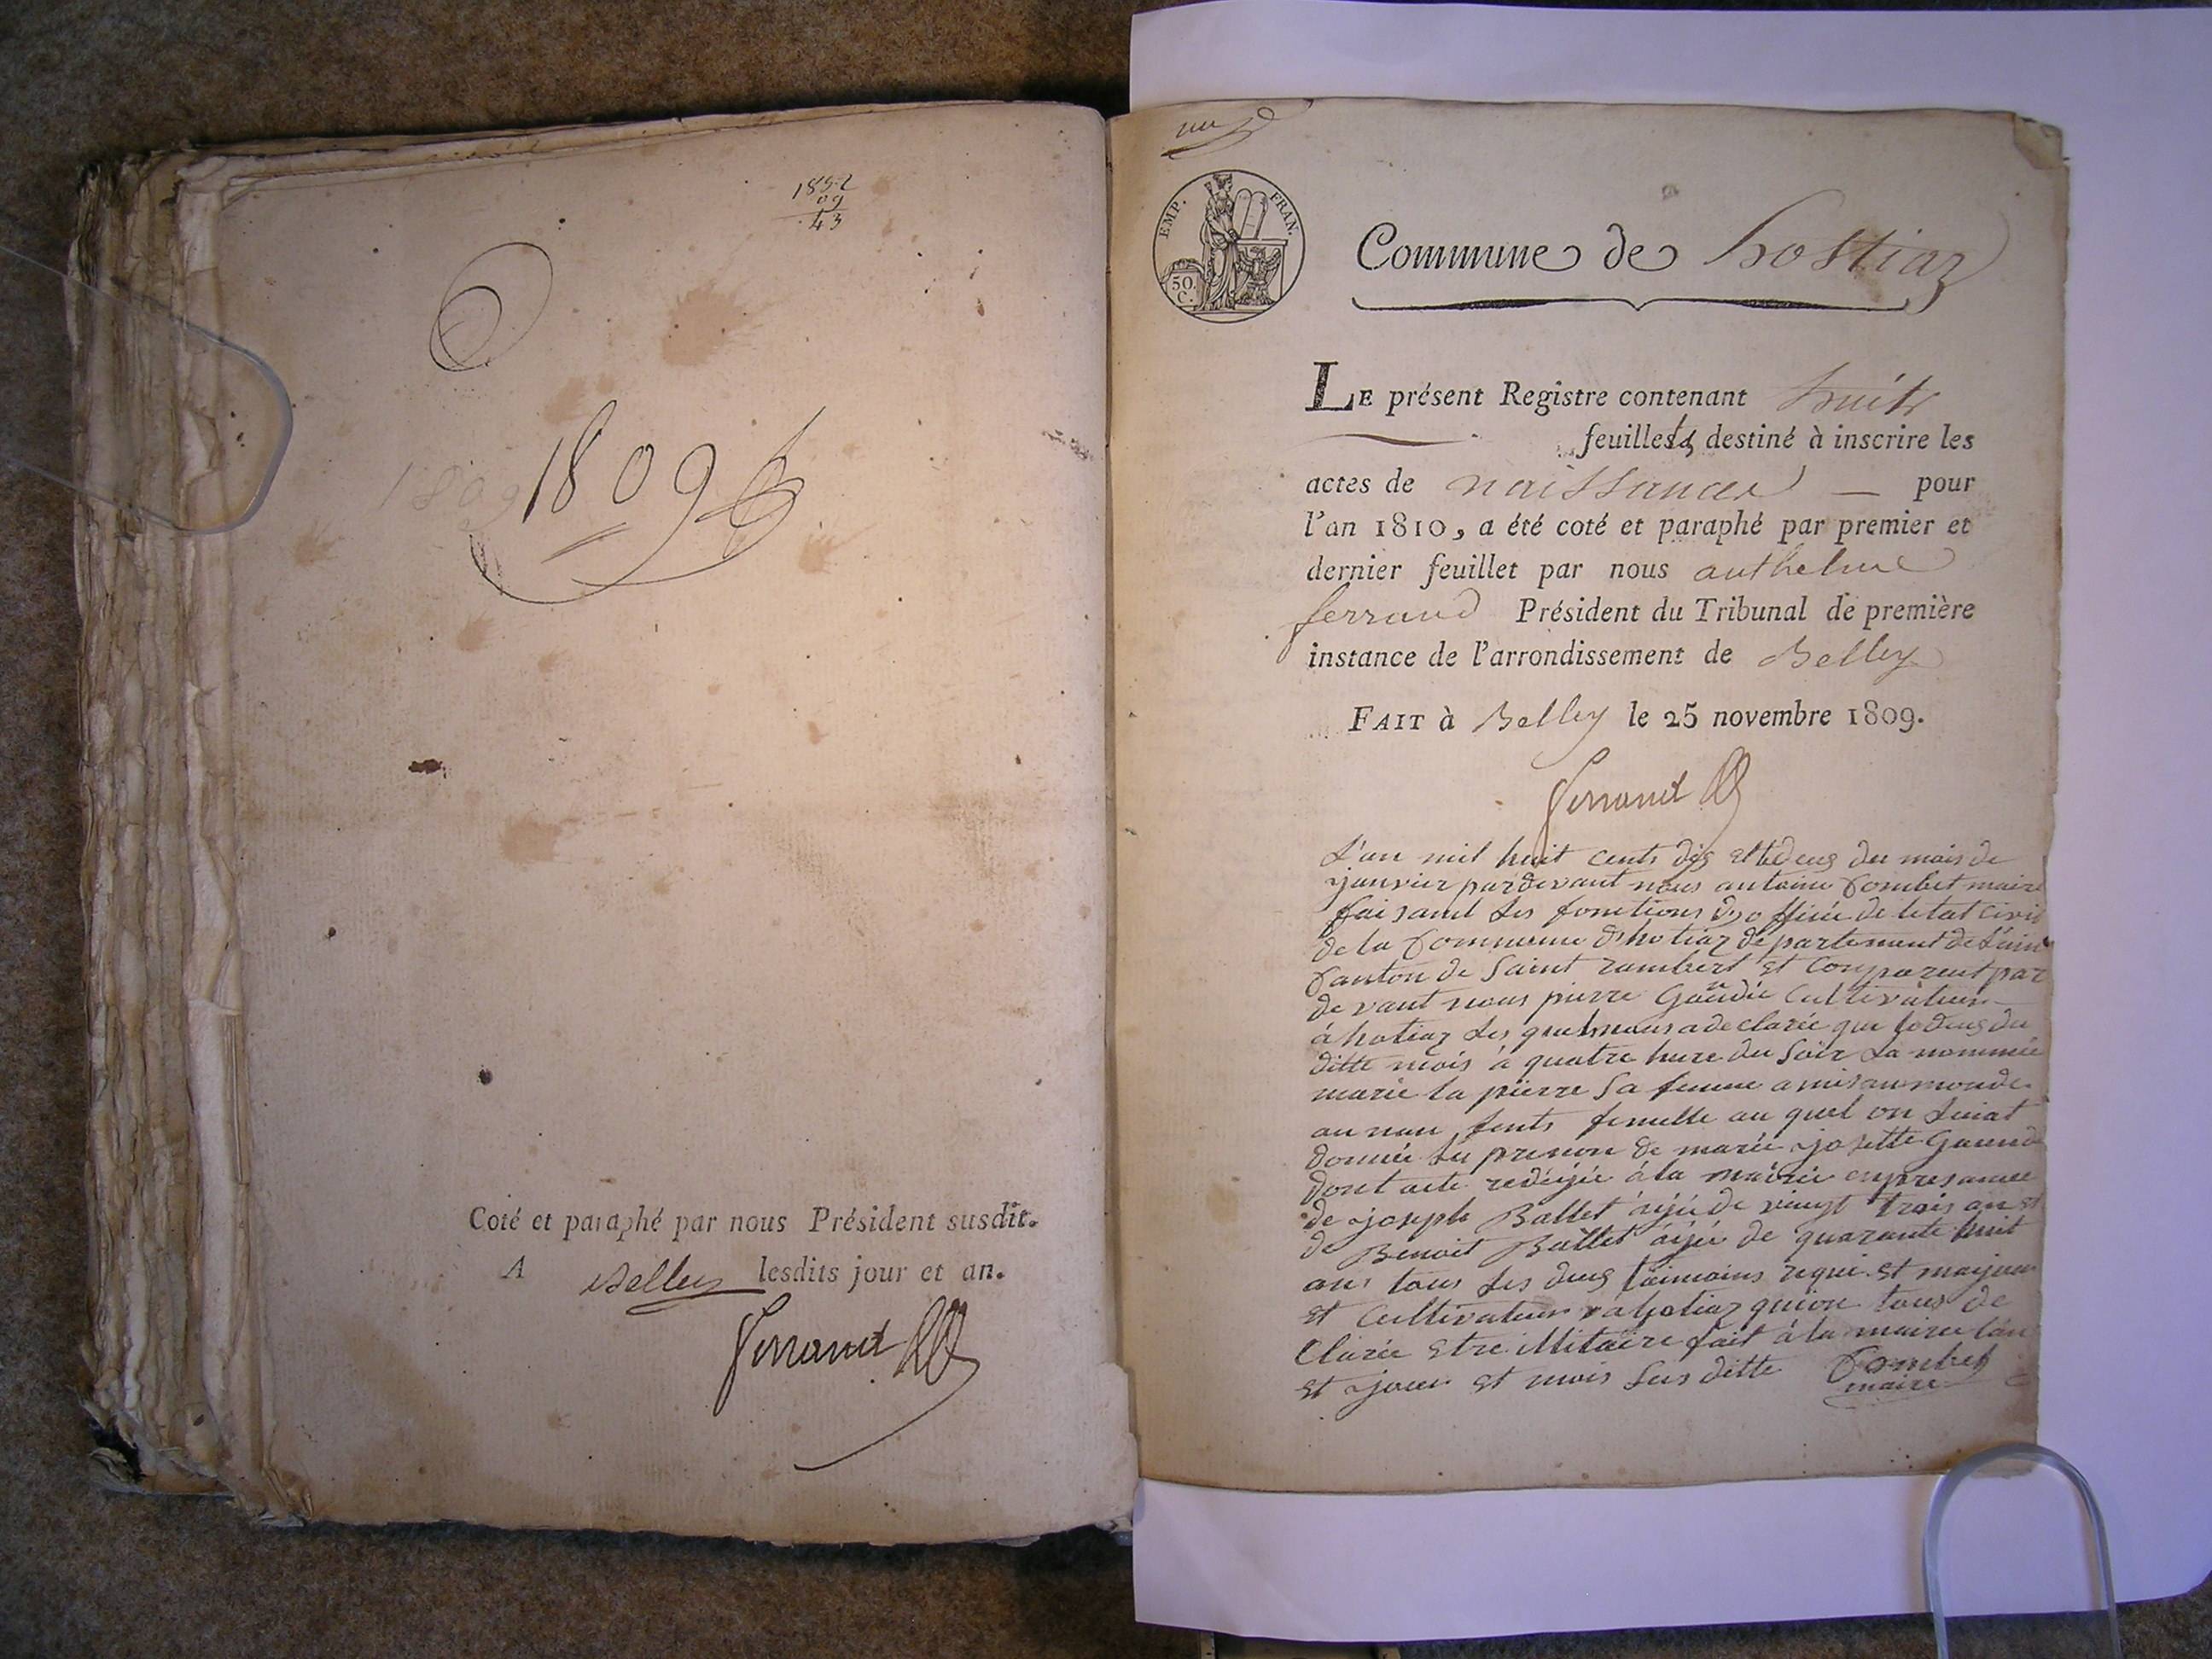 1852
09
43
1809
1809
Coté et paraphé par nous Président susdit.
A Belley lesdits jour et an.
Ferrand
EMP. FRAN.
50.
C.
Commune de hostiaz
LE présent Registre contenant huit
feuillets destiné à inscrire les
actes de naissances — pour
l'an 1810, a été coté et paraphé par premier et
dernier feuillet par nous anthelme
ferrand Président du Tribunal de première
instance de l'arrondissement de Belley
FAIT à Belley le 25 novembre 1809.
Ferrand
L'an mil huit cents dis et le deus du mois de
janvier pardevant nous antoine Combet maire
faisant les fonctions d'officié de letat civil
de la Commune d'hotiaz departement de l'ain
Canton de Saint rambert et Comparent par
devant nous pierre Cultivateur
à hotiaz les quel nous a declarée que le deus du
ditte mois à quatre hure du soir la nommée
marie la pierre sa femme a mis au monde
au nan fents femelle au quel on
donnée le prenon de marie josette
dont acte redéijée à la mairie en presance
de joseph Ballet aijé de vingt trois an et
de Benoit Ballet aijé de quarante huit
ans tous les deus taimoins requi et maijeur
et Cultivateur à hotiaz qui on tous de
Clarée etre illitaire fait à la mairie l'an
et jour et mois sus ditte Combet
maire